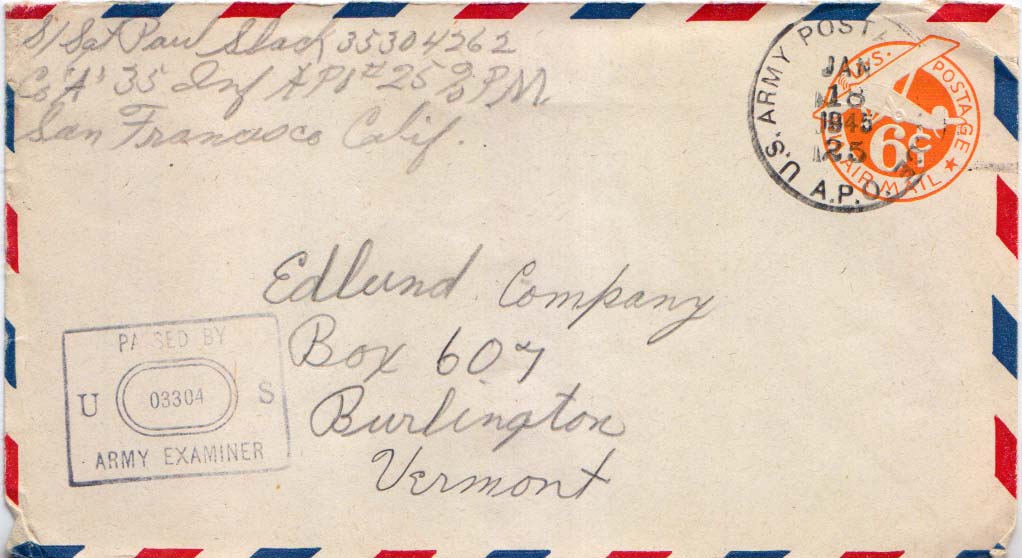 S/Sgt Paul Slack 35304262
Co "A" 35 Inf APO # 25 % PM
San Francisco Calif.
U.S. ARMY POSTAL
A.P.O.
JAN
18
1945
25
U.S. POSTAGE
6¢
AIR MAIL
Edlund Company
Box 607
Burlington
Vermont
PASSED BY
U 03304 S
ARMY EXAMINER